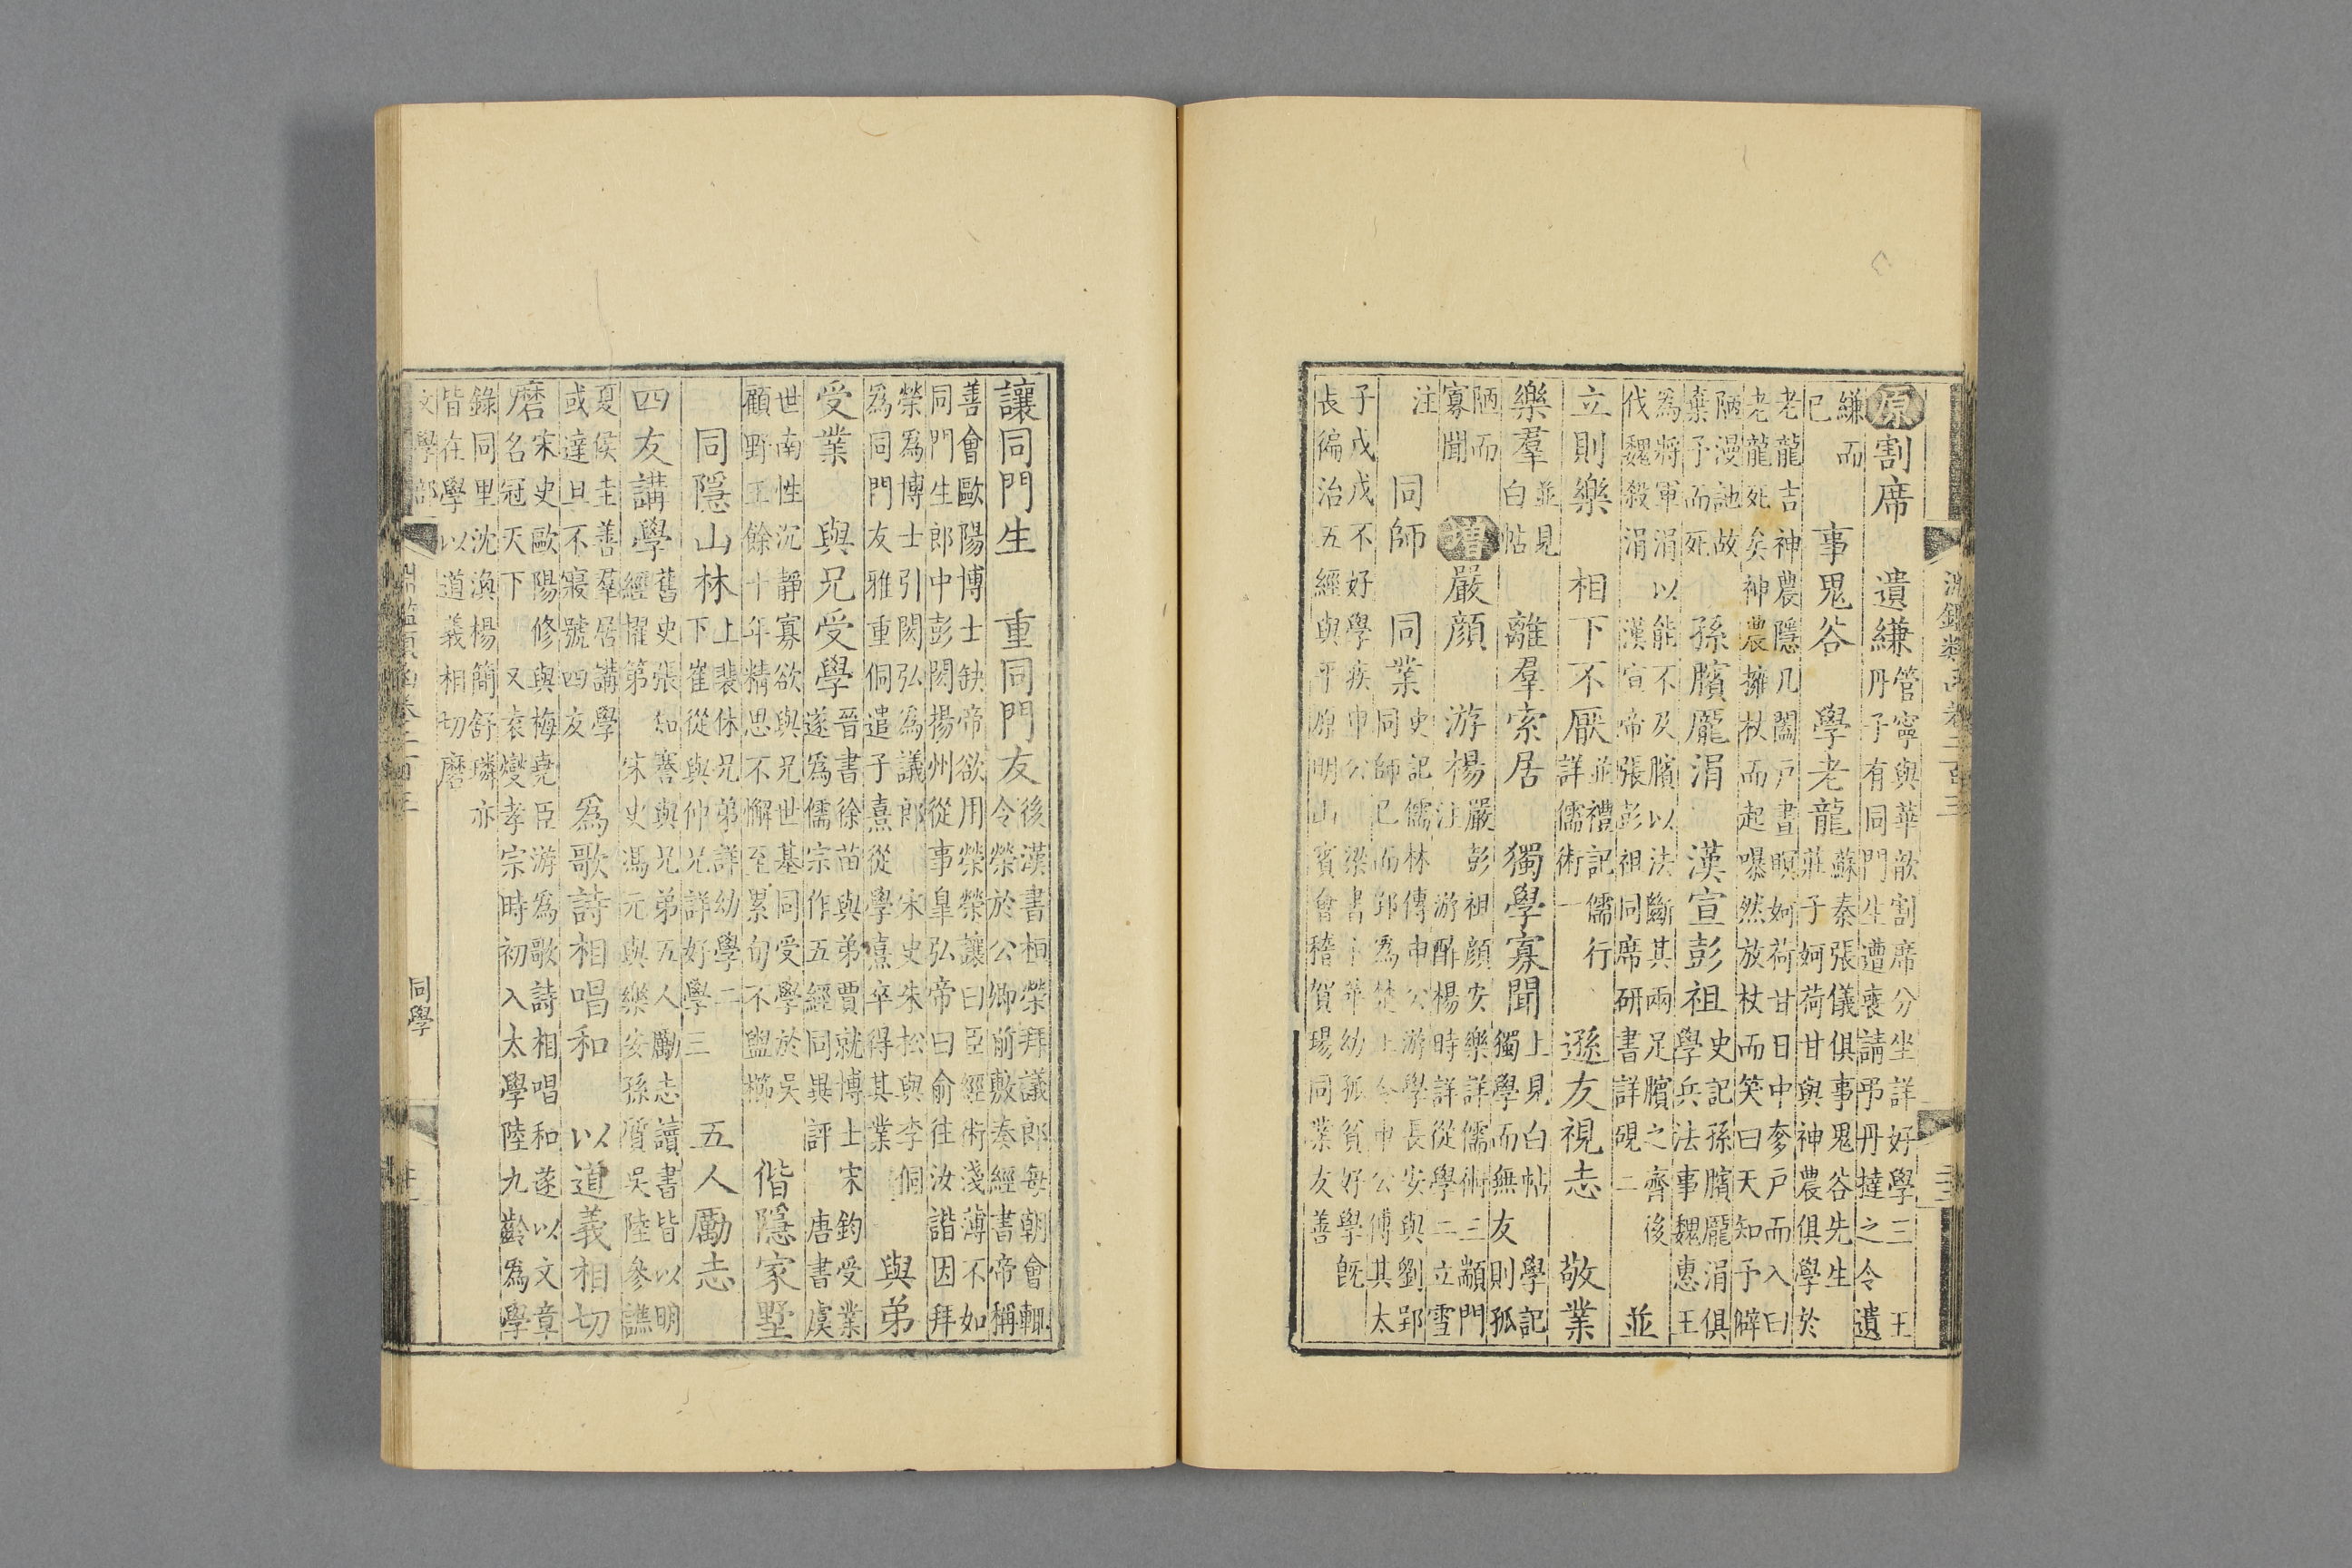 淵鑑類函卷二百三
原割席 遺縑
管寧與華歆割席分坐詳好學三 王
丹子有同門生遭喪請弔丹撻之令遺
縑而
已
事鬼谷 學老龍
蘇秦張儀俱事鬼谷先生
莊子妸荷甘與神農俱學於
老龍吉神農隱几闔戶晝瞑妸荷甘日中奓戶而入曰
老龍死矣神農擁杖而起嚗然放杖而笑曰天知予僻
陋漫訑故
棄予而死
孫臏龐涓 漢宣彭祖
史記孫臏龐涓俱
學兵法事魏惠王
為將軍涓以能不及臏以法斷其兩足臏之齊後
伐魏殺涓 漢宣帝張彭祖同席研書詳硯二
並
立則樂 相下不厭
並禮記儒行
詳儒術一
遜友視志 敬業
樂羣
並見
白帖
離羣索居 獨學寡聞
上見白帖 學記
獨學而無友則孤
陋而
寡聞
增嚴顏 游楊
嚴彭祖顏安樂詳儒術三顓門
注 游酢楊時詳從學二立雪
注
同師 同業
史記儒林傳申公游學長安與劉郢
同師已而郢為楚王令申公傅其太
子戊戊不好學疾申公 梁書卞華幼孤貧好學旣
長徧治五經與平原明山賓會稽賀瑒同業友善
讓同門生 重同門友
後漢書桓榮拜議郎每朝會輒
令榮於公卿前敷奏經書帝稱
善會歐陽博士缺帝欲用榮榮讓曰臣經術淺薄不如
同門生郎中彭閎揚州從事臯弘帝曰俞往汝諧因拜
榮為博士引閎弘為議郎 宋史朱松與李侗
為同門友雅重侗遣子熹從學熹卒得其業
與弟
受業 與兄受學
晉書徐苗與弟賈就博士宋鈞受業
遂為儒宗作五經同異評 唐書虞
世南性沉靜寡欲與兄世基同受學於吳
顧野王餘十年精思不懈至累旬不盥櫛
偕隱家墅
同隱山林
上裴休兄弟詳幼學二
下崔從與仲兄詳好學三
五人勵志
四友講學
舊史張知謇與兄弟五人勵志讀書皆以明
經擢第 宋史馮元與樂安孫質吳陸參譙
夏侯圭善羣居講學
或達旦不寢號四友
為歌詩相唱和 以道義相切
磨
宋史歐陽修與梅堯臣游為歌詩相唱和遂以文章
名冠天下 又袁燮孝宗時初入太學陸九齡為學
錄同里沈渙楊簡舒璘亦
皆在學以道義相切磨
文學部
淵鑑類函卷二百三
同學